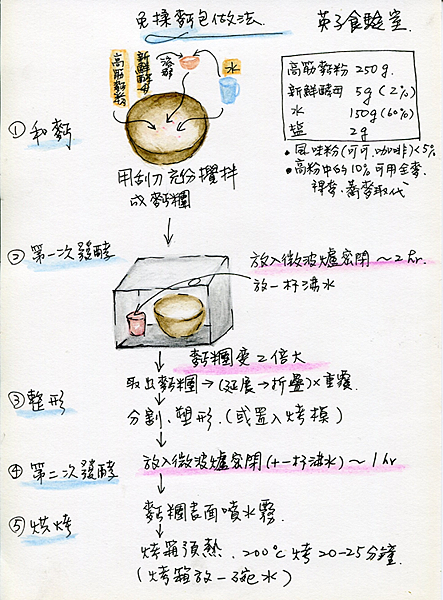 免揉麵包做法.
英子食驗室.
高筋麵粉
新鮮酵母
水
高筋麵粉 250g.
新鮮酵母 5g (2%)
水 150g (60%)
鹽 2g
• 風味粉(可可.咖啡) < 5%
• 高粉中的10%可用全麥.
裸麥.蕎麥取代
① 和麵
用刮刀充份攪拌
成麵糰
② 第一次發酵
放入微波爐密閉~2hr.
放一杯沸水
麵糰變2倍大
取出麵糰→(延展→折疊)×重覆.
③ 整形
分割、塑形.(或置入烤模)
④ 第二次發酵
放入微波爐密閉(+一杯沸水)~1hr
麵糰表面噴水霧.
⑤ 烘烤
烤箱預熱、200℃烤20-25分鐘.
(烤箱放一碗水)